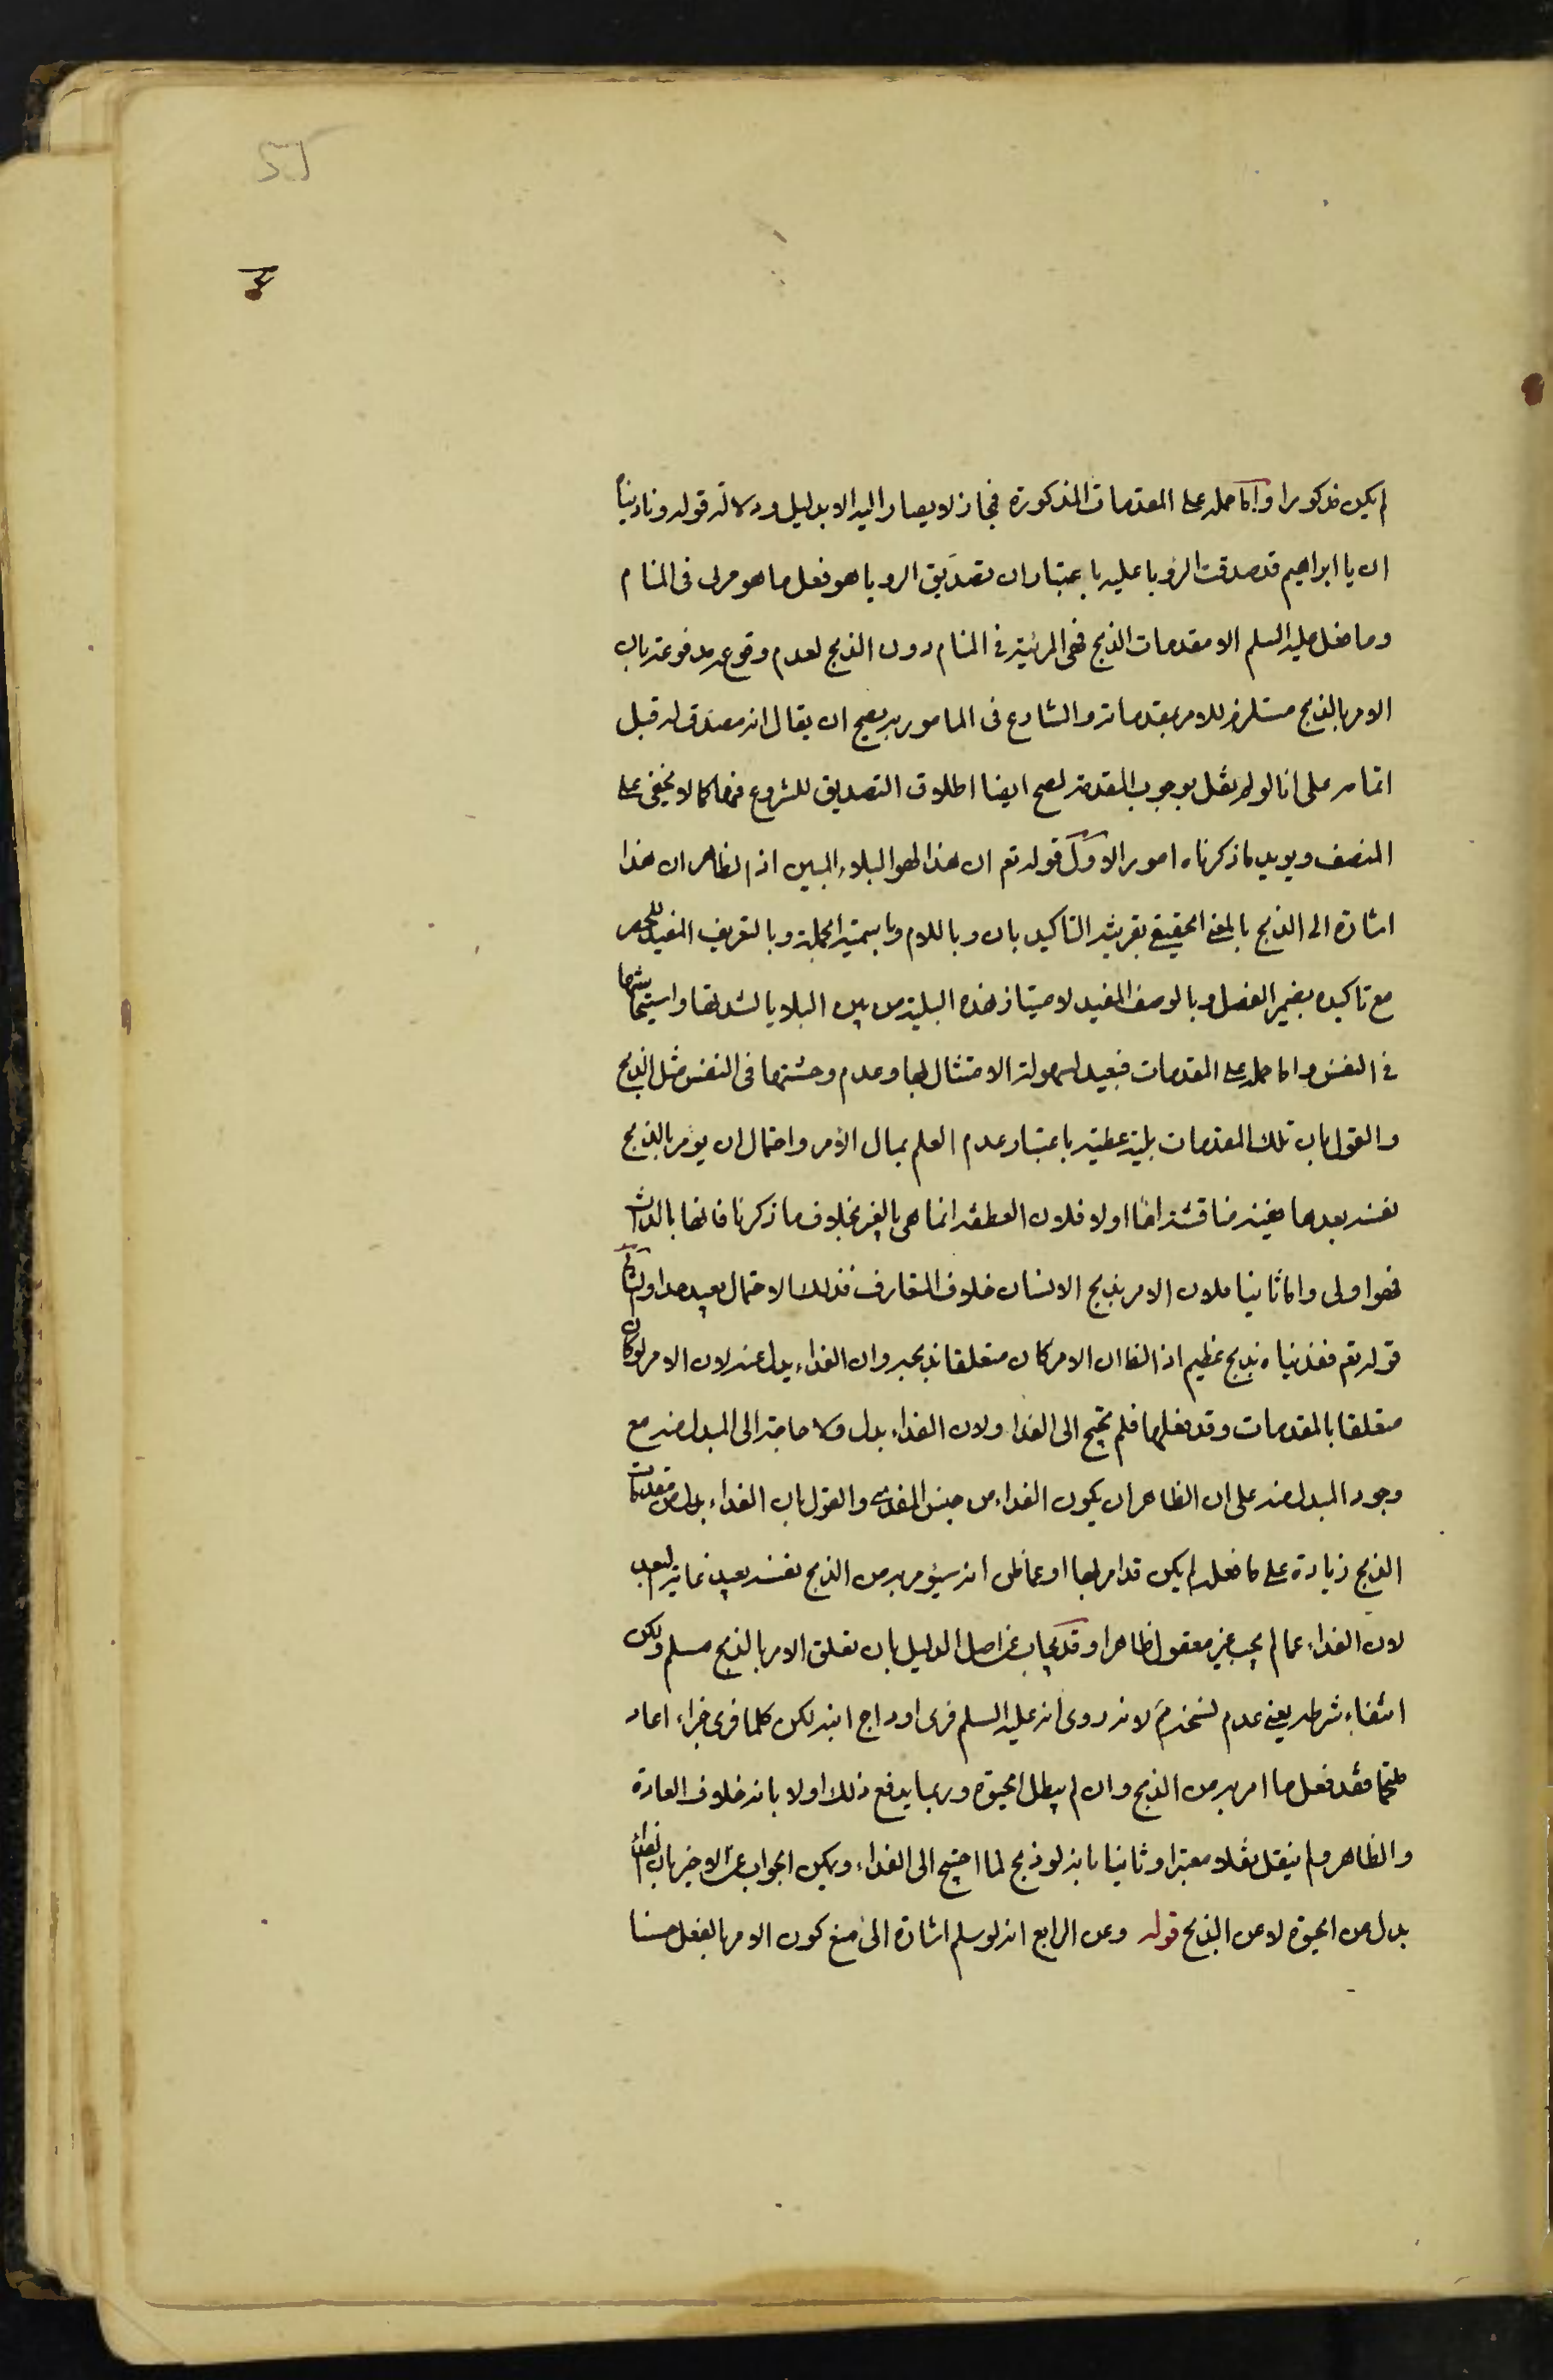 55
لم يكن مذكورا واما حمله على المقدمات المذكورة فمجاز لا يصار اليه الا بدليل ودلالة قوله وناديناه
ان يا ابراهيم قد صدقت الرؤيا عليه باعتبار ان تصديق الرويا هو فعل ما هو مرى فى المنام
وما فعل عليه السلم الا مقدمات الذبح فهى المرئية في المنام دون الذبح لعدم وقوعه مدفوعة بان
الامر بالذبح مستلزم للامر بمقدماته والشارع فى المامور به يصح ان يقال انه مصدق له قبل
اتمامه على انا لو لم نقل بوجوب المقدمة لصح ايضا اطلاق التصديق للشروع فيها كما لا يخفى على
المنصف ويويد ما ذكرناه امور الاول قوله تع ان هذا لهو البلاء المبين اذ الظاهر ان هذا
اشارة الى الذبح بالمعنى الحقيقي بقرينة التاكيد بان وباللام وباسمية الجملة وبالتعريف المفيد للحصر
مع تاكيده بضمير الفصل وبالوصف المفيد لامتياز هذه البلية من بين البلايا لشدتها واستيحاشها
في النفس واما حمله على المقدمات فبعيد لسهولة الامتثال بها وعدم وحشتها فى النفس مثل الذبح
والقول بان تلك المقدمات بلية عظيمة باعتبار عدم العلم بمال الامر واحتمال ان يؤمر بالذبح
نفسه بعدها ففيه مناقشة اما اولا فلان العظمة انما هى بالغير بخلاف ما ذكرنا فانها بالذات
فهو اولى واما ثانيا فلان الامر بذبح الانسان خلاف المتعارف فذلك الاحتمال بعيد جدا والثانى
قوله تع ففديناه بذبح عظيم اذ الظا ان الامر كان متعلقا بذبحه وان الفداء بدل عنه لان الامر لو كان
متعلقا بالمقدمات وقد فعلها فلم يحتج الى الفدا ولان الفداء بدل ولا حاجة الى المبدل منه مع
وجود المبدل منه على ان الظاهر ان يكون الفداء من جنس المفدى والقول بان الفداء بدل من مقدمات
الذبح زيادة على ما فعله لم يكن قد امر بها او عما ظن انه سيؤمر به من الذبح نفسه بعيد غاية البعد
لان الفداء عما لم يجب غير معقول ظاهرا وقد يجاب عن اصل الدليل بان تعلق الامر بالذبح مسلم ولكن
انتفاء شرطه يعنى عدم نسخه لانه روى انه عليه السلم فرى اوداج ابنه لكن كلما فرى جزاء اعاد
ملتحما فقد فعل ما امر به من الذبح وان لم يبطل الحيوة وربما يدفع ذلك اولا بانه خلاف العادة
والظاهر ولم ينقل نقلا معتبرا وثانيا بانه لو ذبح لما احتيج الى الفداء ويمكن الجواب عن الاخير بان الفداء
بدل من الحيوة لا عن الذبح قوله وعن الرابع انه لو سلم اشارة الى منع كون الامر بالفعل حسنا